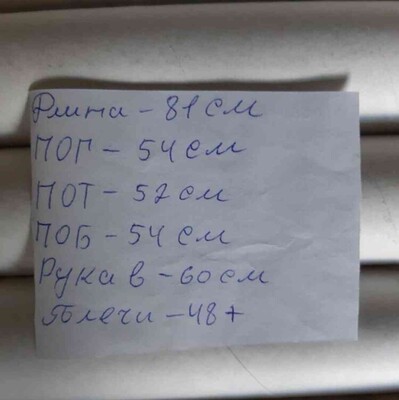 Длина - 81 см
ПОГ - 54 см
ПОТ - 52 см
ПОБ - 54 см
Рукав - 60 см
Плечи - 48+